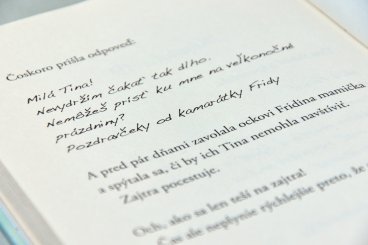 Čoskoro prišla odpoveď:
Milá Tina!
Nevydržím čakať tak dlho.
Nemôžeš prísť ku mne na veľkonočné
prázdniny?
Pozdravčeky od kamarátky Fridy
A pred pár dňami zavolala ockovi Fridina mamička
a spýtala sa, či by ich Tina nemohla navštíviť.
Zajtra pocestuje.
Och, ako sa len teší na zajtra!
Čas ale neplynie rýchlejšie preto, že